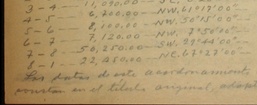 3 - 4 ---- 11,090.00 --
4 - 5 ---- 6,700.00 -- N.W. 61°17'00"
5 - 6 ---- 8,100.00 -- N.W. 30°15'00"
6 - 7 ---- 7,120.00 -- N.W. 7°56'00"
7 - 8 -- 50,250.00 -- S.W. 29°44'00"
8 - 1 -- 22,450.00 -- N.E. 67°27'00"
Los datos de este
constan en el título original,